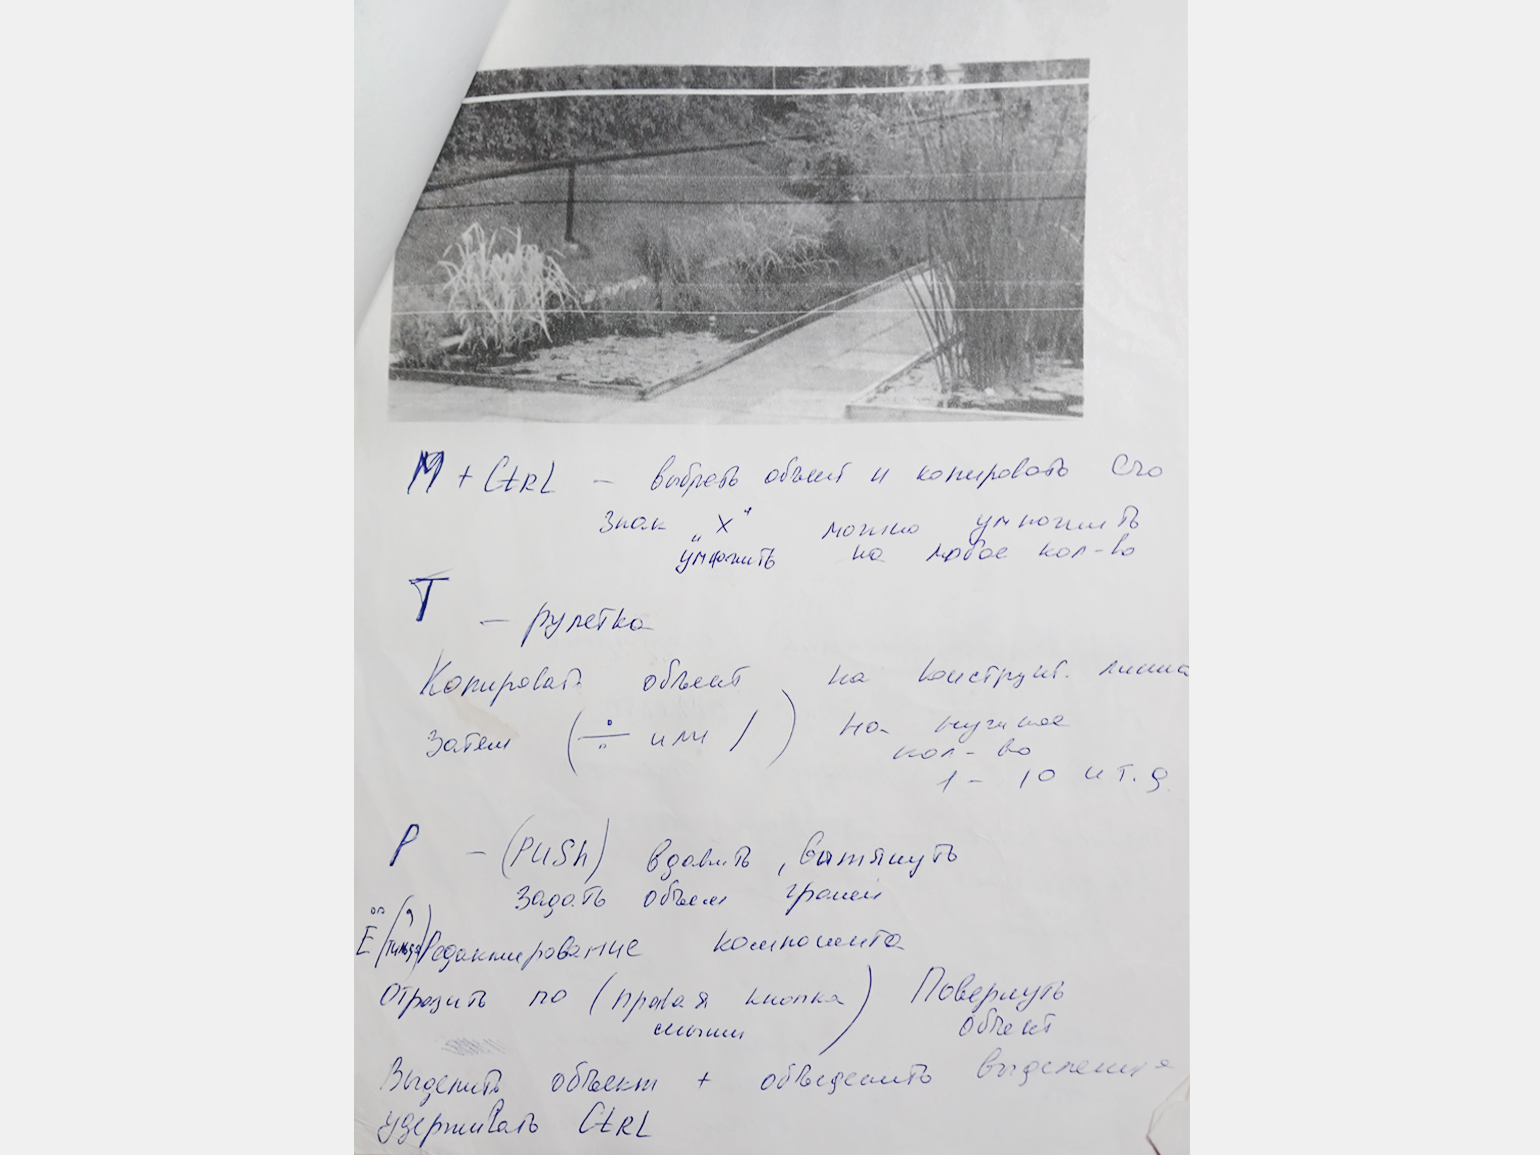 M + CtRL — выбрать объект и копировать его
Знак „X" можно умножить
умножить на любое кол-во
T — рулетка
Копировать объект на конструкт. линии
Затем ( ÷ или / ) на нужное
кол-во
1 - 10 и т.д.
P — (PUSh) вдавить, вытянуть
задать объем граней
E Редактирование компонента
Отразить по (правая кнопка мыши) Повернуть
объект
Выделить объект + объеденить выделения
удерживать CtRL